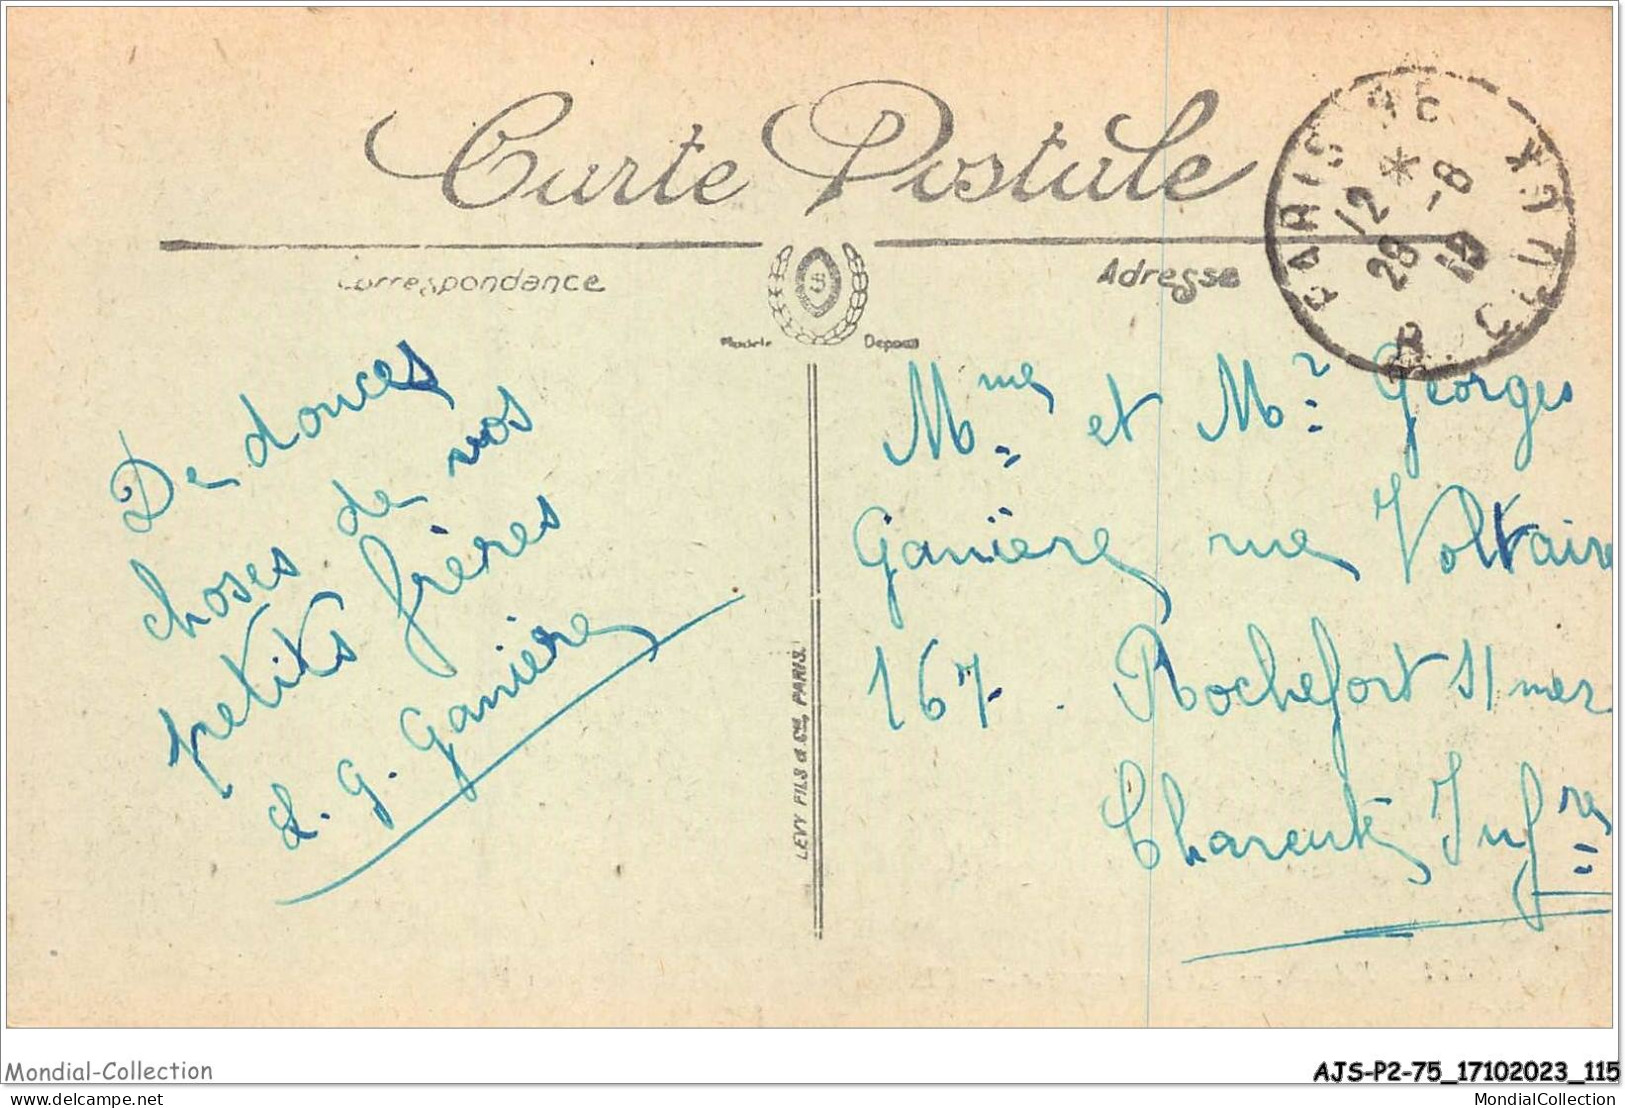 Carte Postale
Correspondance
Adresse
Modèle Déposé
PARIS
12 *
28 -8
19
De douces
choses de vos
petits frères
L. G. Ganière
LEVY FILS & Cie, PARIS.
Mme et Mr Georges
Ganière rue Voltaire
167. Rochefort s/mer
Charente Infre
Mondial-Collection
AJS-P2-75_17102023_115
delcampe.net
MondialCollection